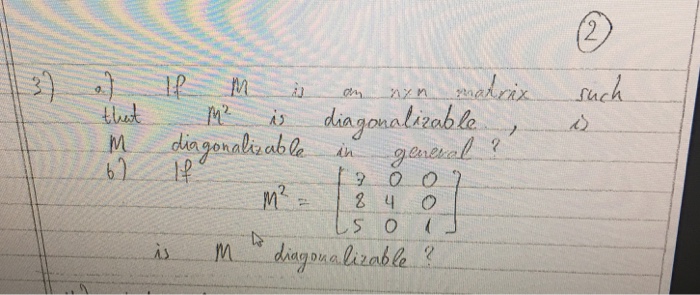 2
3) a) If M is an nxn matrix such
that M² is diagonalizable, is
M diagonalizable in general?
b) If
M² = [ 3 0 0
8 4 0
5 0 1 ]
is M diagonalizable?